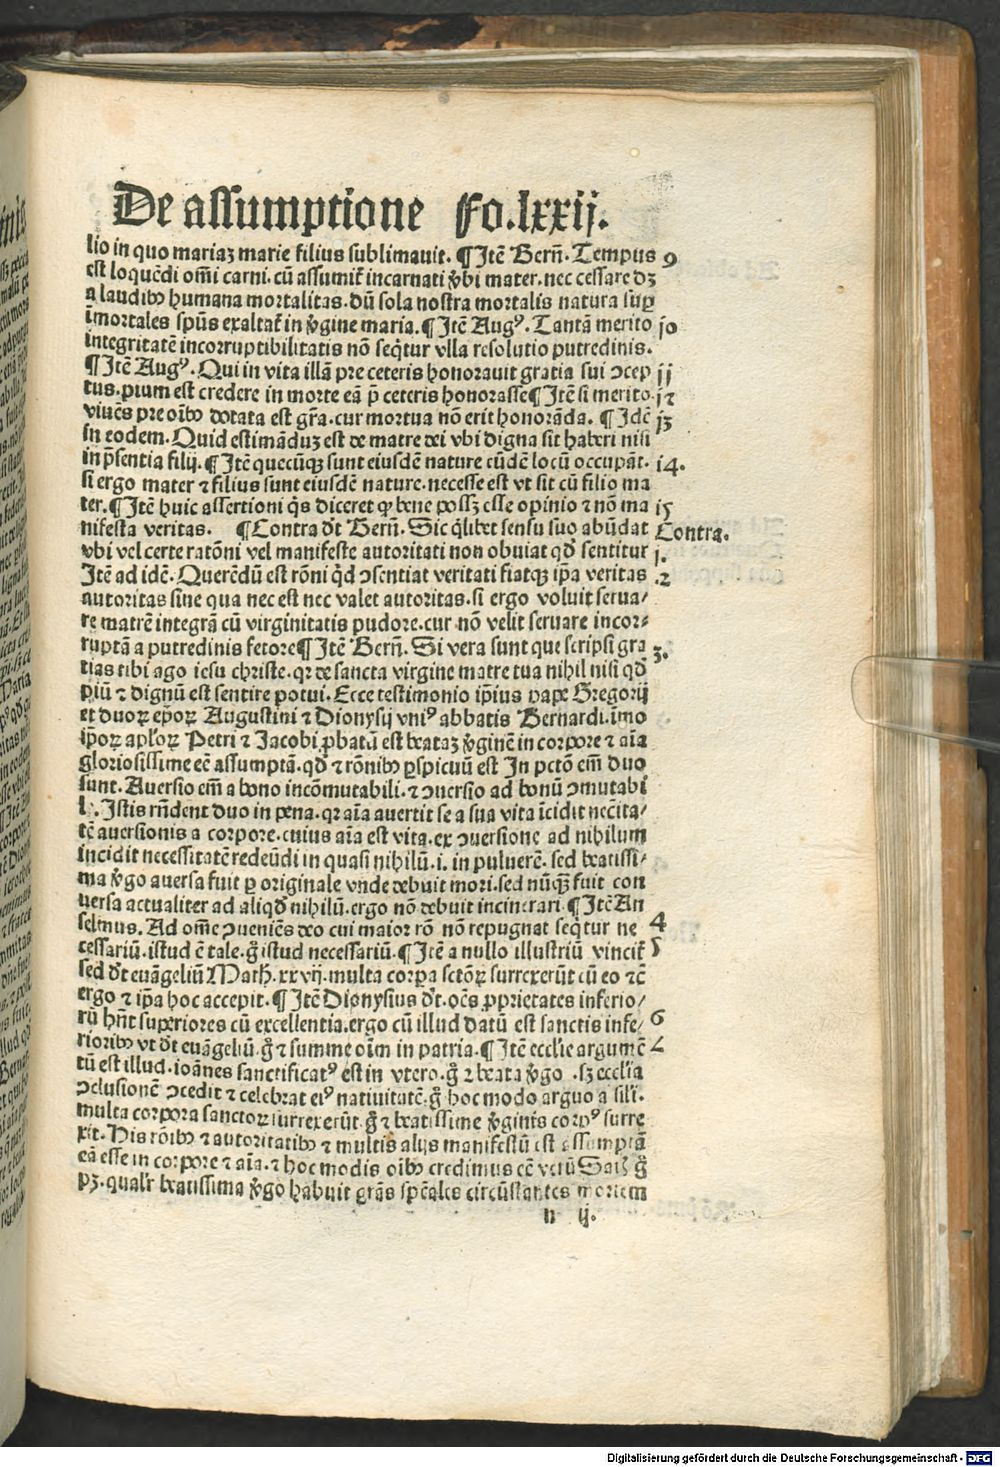 De assumptione Fo.lxxij.
lio in quo mariaʒ marie filius sublimauit. ¶ Itē Berñ. Tempus 9
est loquēdi om̄i carni. cū assumit̄ incarnati v̄bi mater. nec cessare dʒ
a laudibꝰ humana mortalitas. dū sola nostra mortalis natura suꝑ
īmortales spūs exaltat̄ in v̄gine maria. ¶ Itē Augꝰ. Tantā merito jo
integritatē incorruptibilitatis nō seq̄tur vlla resolutio putredinis.
¶ Itē Augꝰ. Qui in vita illā pre ceteris honorauit gratia sui ↄcep jj
tus. pium est credere in morte eā p̄ ceteris honorasse ¶ Itē si merito jz
viuēs pre oībꝰ dotata est gr̄a. cur mortua nō erit honorāda. ¶ Idē jʒ
in eodem. Quid estimāduʒ est de matre dei vbi digna sit haberi nisi
in p̄sentia filij. ¶ Itē quecūqʒ sunt eiusdē nature eūdē locū occupāt. j4.
si ergo mater ⁊ filius sunt eiusdē nature. necesse est vt sit cū filio ma
ter. ¶ Itē huic assertioni q̄s diceret ꝙ bene possʒ esse opinio ⁊ nō ma j5
nifesta veritas. ¶ Contra dt̄ Berñ. Sic q̄libet sensu suo abūdat Contra.
vbi vel certe ratōni vel manifeste autoritati non obuiat qd̄ sentitur j.
Itē ad idē. Querēdū est rōni q̄d ↄsentiat veritati fiatqʒ ip̄a veritas .2
autoritas sine qua nec est nec valet autoritas. si ergo voluit serua/
re matrē integrā cū virginitatis pudore. cur nō velit seruare incor/
ruptā a putredinis fetore ¶ Itē Berñ. Si vera sunt que scripsi gra 3.
tias tibi ago iesu christe. qꝛ de sancta virgine matre tua nihil nisi qd̄
piū ⁊ dignū est sentire potui. Ecce testimonio ip̄ius pape Gregorij
et duoꝝ ep̄oꝝ Augustini ⁊ Dionysij vniꝰ abbatis Bernardi. īmo
ip̄oꝝ apl̄oꝝ Petri ⁊ Jacobi ꝓbatū est beataʒ v̄ginē in corpore ⁊ aīa
gloriosissime eē assumptā. qd̄ ⁊ rōnibꝰ ꝑspicuū est In pctō em̄ duo
sunt. Auersio em̄ a bono incōmutabili. ⁊ ↄuersio ad bonū ↄmutabi
l'. Istis rn̄dent duo in pena. qꝛ aīa auertit se a sua vita īcidit nec̄ita/
tē auersionis a corpore. cuius aīa est vita. ex ↄuersione ad nihilum
incidit necessitatē redeūdi in quasi nihilū. i. in puluerē. sed beatissi/
ma v̄go auersa fuit ꝑ originale vnde debuit mori. sed nūqʒ fuit con
uersa actualiter ad aliqd̄ nihilū. ergo nō debuit incinerari. ¶ Itē An
selmus. Ad om̄e ↄueniēs deo cui maior rō nō repugnat seq̄tur ne 4
cessariū. istud ē tale. g̊ istud necessariū. ¶ Itē a nullo illustriū vincit̄ 5
sed dt̄ euāgeliū Math̄. xxvij. multa corꝑa sctōꝝ surrexerūt cū eo ⁊ c̄
ergo ⁊ ip̄a hoc accepit. ¶ Itē Dionysius dt̄. oēs ꝓprietates inferio/
rū hn̄t superiores cū excellentia. ergo cū illud datū est sanctis infe/ 6
rioribꝰ vt dt̄ euāgeliū. g̊ ⁊ summe oīm in patria. ¶ Itē eccl̄ie argumē 7
tū est illud. ioānes sanctificatꝰ est in vtero. g̊ ⁊ beata v̄go. sʒ eccl̄ia
ↄclusionē ↄcedit ⁊ celebrat eiꝰ natiuitatē. g̊ hoc modo arguo a sili̅.
multa corpora sanctoꝝ surrexerūt. g̊ ⁊ beatissime v̄ginis corpꝰ surre
xit. His rōibꝰ ⁊ autoritatibꝰ ⁊ multis alijs manifestū est assumptā
eā esse in corpore ⁊ aīa. ⁊ hoc modis oībꝰ credimus eē verū g̊
pʒ. qualr̄ beatissima v̄go habuit gr̄as sp̄cāles circūstantes mortem
n ij.
Digitalisierung gefördert durch die Deutsche Forschungsgemeinschaft - DFG